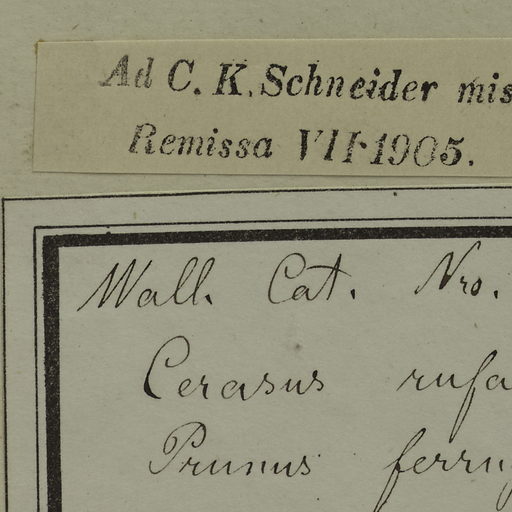 Ad C. K. Schneider mis
Remissa VII·1905.
Wall. Cat. Nro.
Cerasus rufa
Prunus ferrug